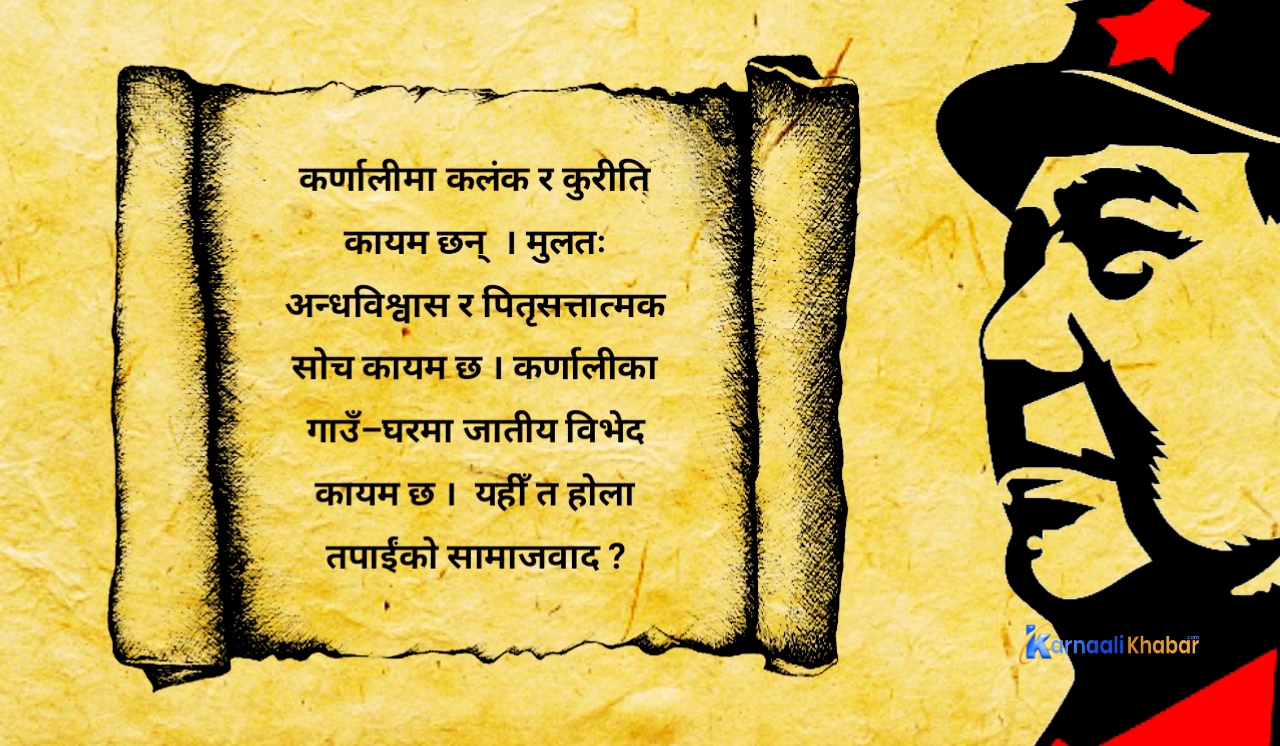 कर्णालीमा कलंक र कुरीति
कायम छन् । मुलतः
अन्धविश्वास र पितृसत्तात्मक
सोच कायम छ । कर्णालीका
गाउँ–घरमा जातीय विभेद
कायम छ । यहीँ त होला
तपाईंको सामाजवाद ?
Karnaali Khabar
.com